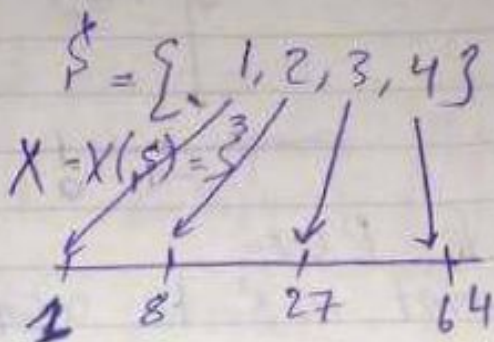 S = {1, 2, 3, 4}
X = X(S) = S³
1 8 27 64